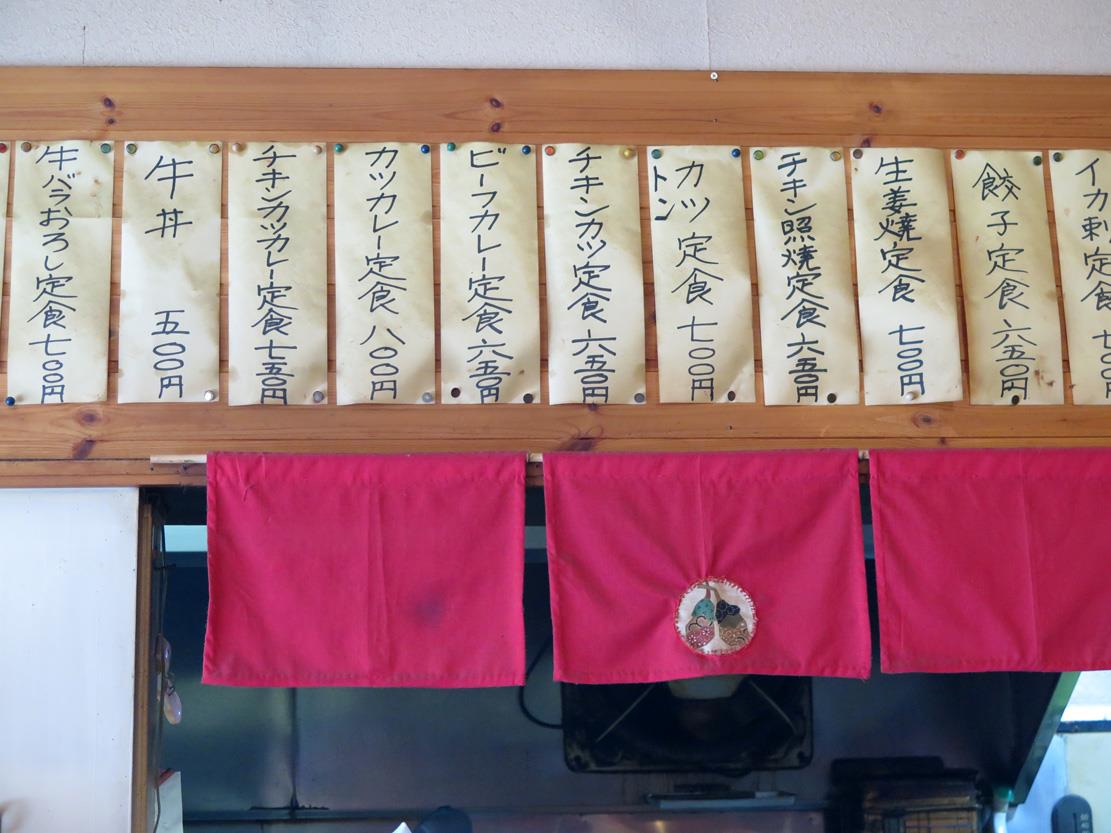 イカ刺定食 七〇〇円
餃子定食 六五〇円
生姜焼定食 七〇〇円
チキン照焼定食 六五〇円
トンカツ定食 七〇〇円
チキンカツ定食 六五〇円
ビーフカレー定食 六五〇円
カツカレー定食 八〇〇円
チキンカツカレー定食 七五〇円
牛丼 五〇〇円
牛バラおろし定食 七〇〇円